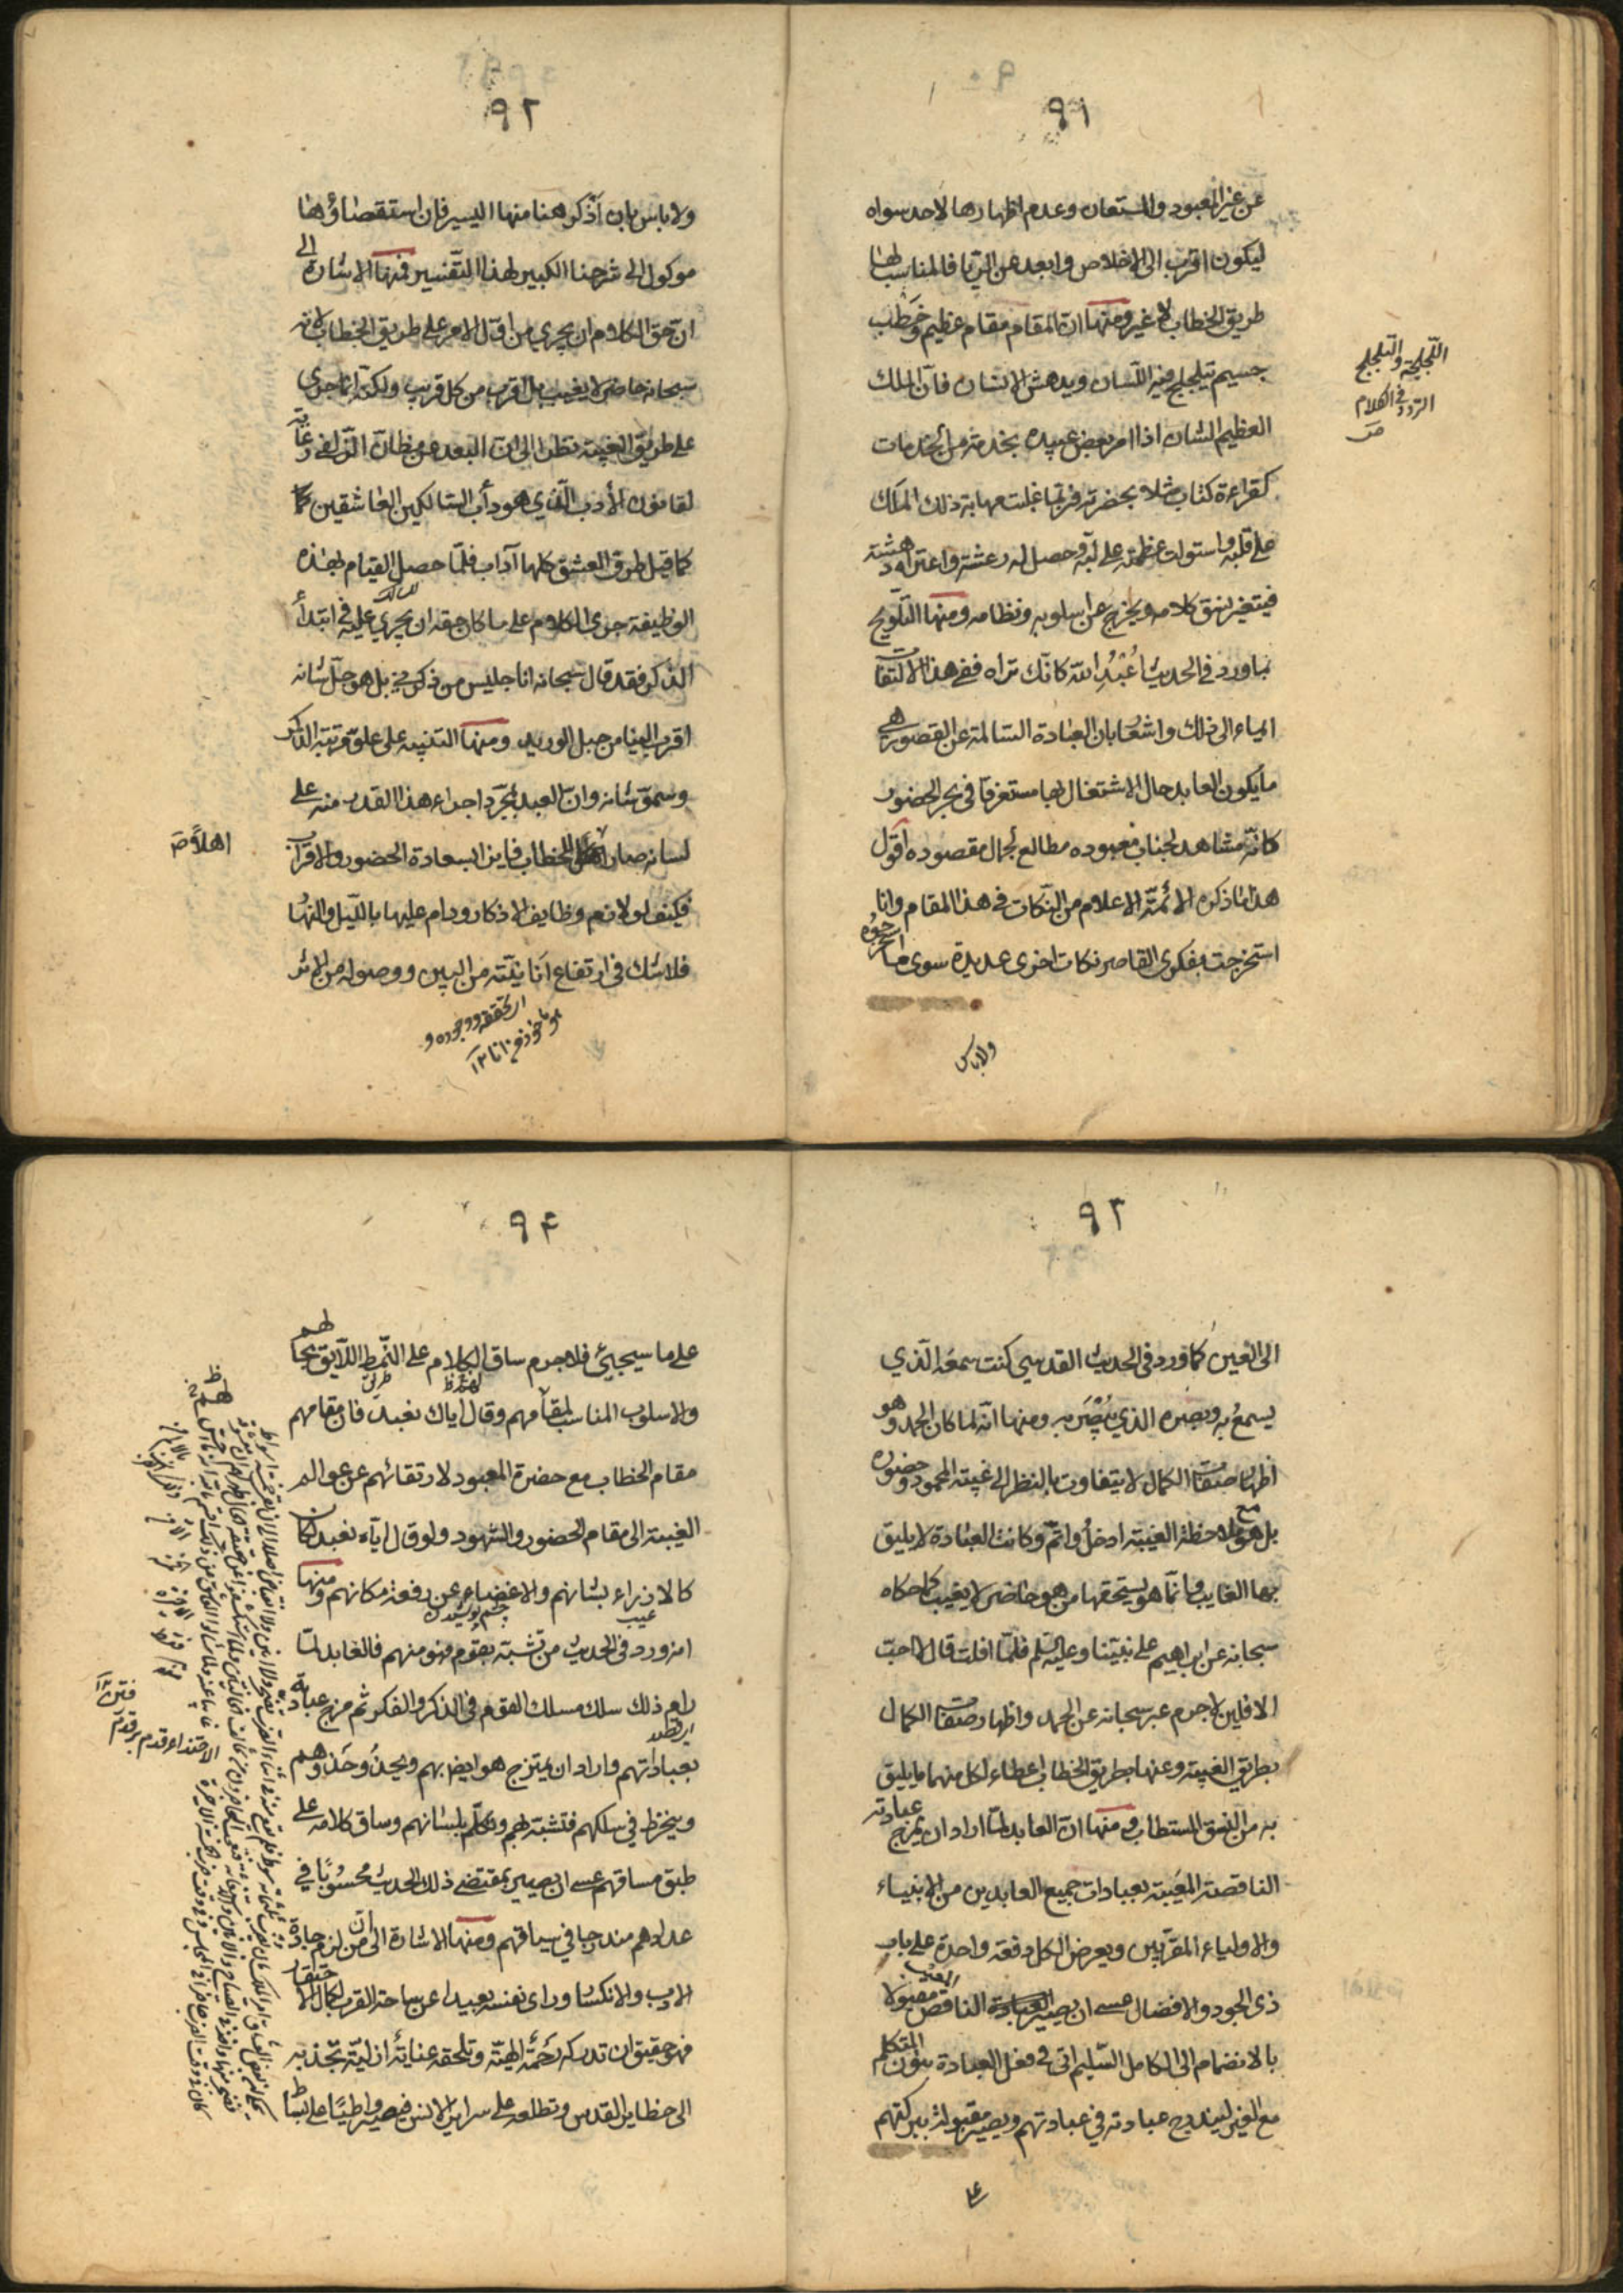 ٩١
عن غير المعبود والمستعان وعدم اظهارها لاحد سواه
ليكون اقرب الى الاخلاص وابعد من الريا فالمناسب لها
طريق الخطاب لا غير ومنها ان المقام مقام عظيم وخطب
جسيم يتلجلج فيه اللسان ويدهش الانسان فان الملك
العظيم الشان اذا امر بعض عبيده بخدمة من الخدمات
كقراءة كتاب مثلا بحضرته فربما غلبت مهابة ذلك الملك
على قلبه واستولت عظمته على لبه وحصل له رعشة واعتراه دهشة
فيتغير نسق كلامه ويخرج عن اسلوبه ونظامه ومنها التلويح
بما ورد في الحديث اُعْبُدِ الله كانك تراه ففي هذا الالتفات
ايماء الى ذلك واشعار بان العبادة السالمة عن القصور هي
ما يكون العابد حال الاشتغال بها مستغرقا في بحر الحضور
كانه مشاهد لجناب معبوده مطالع لجمال مقصوده اقول
هذا ما ذكره الائمة الاعلام من النكات في هذا المقام وانا
استخرجت بفكري القاصر نكات اخرى عديدة سوى ما استخرجوه
ولاباس
اللجلجة والتلجلج
التردد في الكلام
ص
٩٢
ولا باس بان اذكر هنا منها اليسير فان استقصاؤها
موكول الى شرحنا الكبير لهذا التفسير فمنها الاشارة الى
ان حق الكلام ان يجري من اول الامر على طريق الخطاب لانه
سبحانه حاضر لا يغيب بل اقرب من كل قريب ولكنه انما جرى
على طريق الغيبة نظرا الى ان البعد عن مظان الزلفى رعاية
لقانون الأدب الذي هو دأب السالكين العاشقين كما
كما قيل طرق العشق كلها آداب فلما حصل القيام بهذه
الوظيفة جرى الكلام على ما كان حقه ان يجري عليه في ابتدأ
الذكر فقد قال سبحانه انا جليس من ذكرني بل هو جل شانه
اقرب الينا من حبل الوريد ومنها التنبيه على علو مرتبة الذكر
وسمو شانه وان العبد بمجرد اجراء هذا القدر منه على
لسانه صار اهل الخطاب فايزا بسعادة الحضور والاقتراب
فكيف لو لازم وظايف الاذكار ودام عليها بالليل والنهار
فلا شك في ارتفاع انانيته من البين ووصوله من الاثر
اهلا ص
اي تحققه ووجوده و
هو ماخوذ من انا ١٢
٩٣
الى العين كما ورد في الحديث القدسي كنت سمعه الذي
يسمع به وبصره الذي يبصر به ومنها انه لما كان الحمد وهو
اظهار صفات الكمال لا يتفاوت بالنظر الى غيبة المحمود وحضوره
بل هو مع ملاحظة الغيبة ادخل واتم وكانت العبادة لا يليق
بها الغايب وانما هو يستحقها من هو حاضر لا يغيب كما حكاه
سبحانه عن ابراهيم على نبينا وعليه السلم فلما افلت قال لا احب
الافلين لاجرم عبر سبحانه عن الحمد واظهار صفات الكمال
بطريق الغيبة وعنها بطريق الخطاب اعطاء لكل منهما ما يليق
به من النسق المستطاب ومنها ان العابد لما اراد ان يمزج عبادته
الناقصة المعيبة بعبادات جميع العابدين من الانبياء
والاولياء المقربين ويعرض الكل دفعة واحدة على باب
ذي الجود والافضال عسى ان يصير الناقص مقبولا
بالانضمام الى الكامل السليم اتى في فعل العبادة بنون المتكلم
مع الغير ليندرج عبادته في عبادتهم ويصير مقبولة ببركتهم
على
٩٤
على ما سيجيئ فلاجرم ساق الكلام على النمط اللايق بحالهم
والاسلوب المناسب لمقامهم وقال اياك نعبد فان مقامهم
مقام الخطاب مع حضرة المعبود لارتقائهم عن عوالم
الغيبة الى مقام الحضور والشهود ولو قال اياه نعبد لكان
كالازراء بشانهم والاغضاء عن رفعة مكانهم ومنها
عيب
چشم پوشيدن
انه ورد في الحديث من تشبه بقوم فهو منهم فالعابد لما
رام ذلك سلك مسلك القوم في الذكر والفكر ثم مزج عبادته
بعباداتهم واراد ان يمتزج هو ايضا بهم ويحذو حذوهم
وينخرط في سلكهم فتشبه بهم وتكلم بلسانهم وساق كلامه على
طبق مساقهم عسى ان يصير بمقتضى ذلك الحديث محسوبا في
عدادهم مندرجا في سياقهم ومنها الاشارة الى ان من لزم جادة
الادب والانكسار وراى نفسه بعيدا عن ساحة القرب لكمال الاحتقار
فهو حقيق ان تدركه رحمة الهية وتلحقه عناية ازلية تجذبه
الى حظاير القدس وتطلعه على سراير الانس فيصير واطيا على بساط